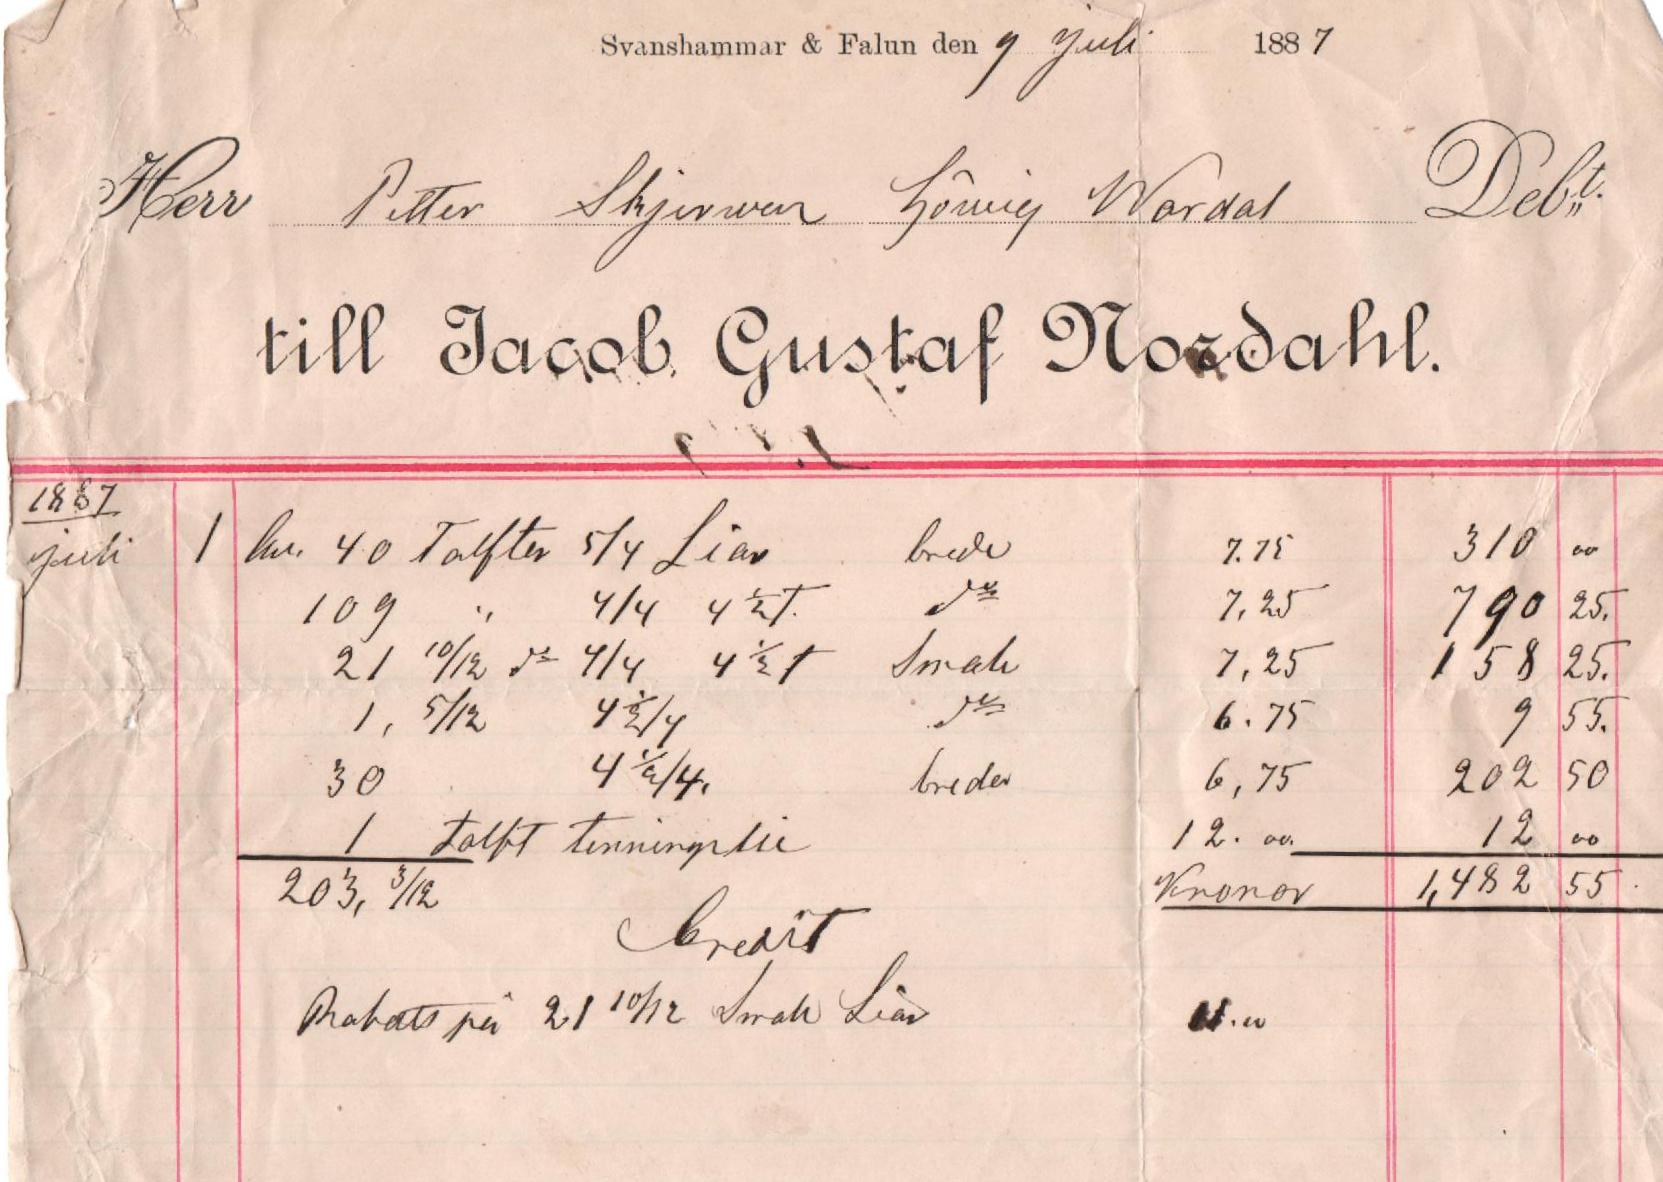 Svanshammar & Falun den 9 juli 1887
Herr Petter Skjerwen Höwig Wardal Debt.
till Jacob Gustaf Nordahl.
1887
juli 1 40 Talfter 5/4 Liar brede 7.75 310 00
109 " 4/4 4 1/2 T. do 7,25 790 25.
21 10/12 do 4/4 4 1/2 T Smale 7,25 158 25.
1, 5/12 4 1/2/4 do 6.75 9 55.
30 4 1/2/4. breder 6,75 202 50
1 talft tenningslie 12.00. 12 00
203, 3/12 Kronor 1,482 55
Credit
Rabatts på 21 10/12 Smale Liar